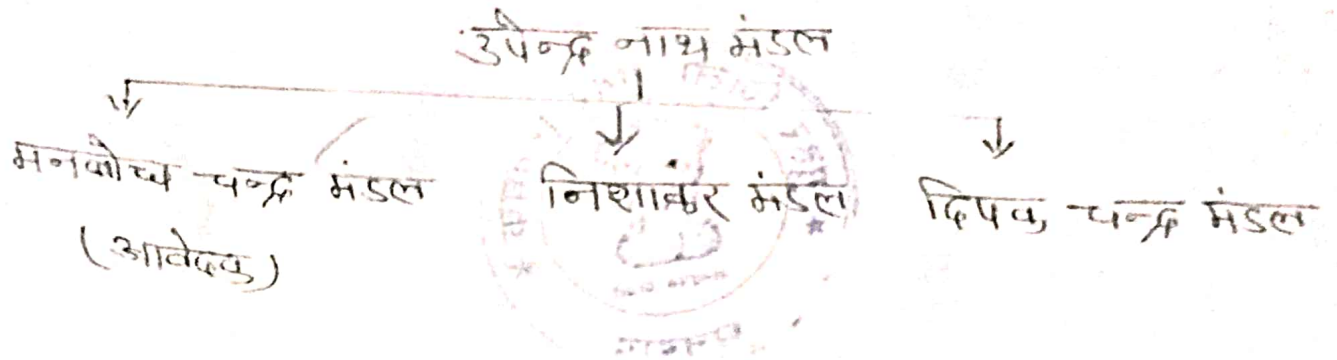 उपेन्द्र नाथ मंडल
मनबोध चन्द्र मंडल निशाकंर मंडल दिपक चन्द्र मंडल
(आवेदक)